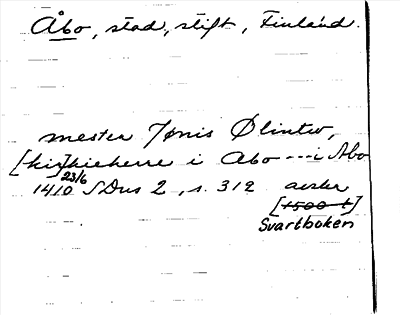 Åbo, stad, stift, Finland.
mester Jønis Ølintw,
[kir]kieherre i Abo --- i Abo
23/6
1410 SDns 2, s. 312 avskr
[1500 t]
Svartboken